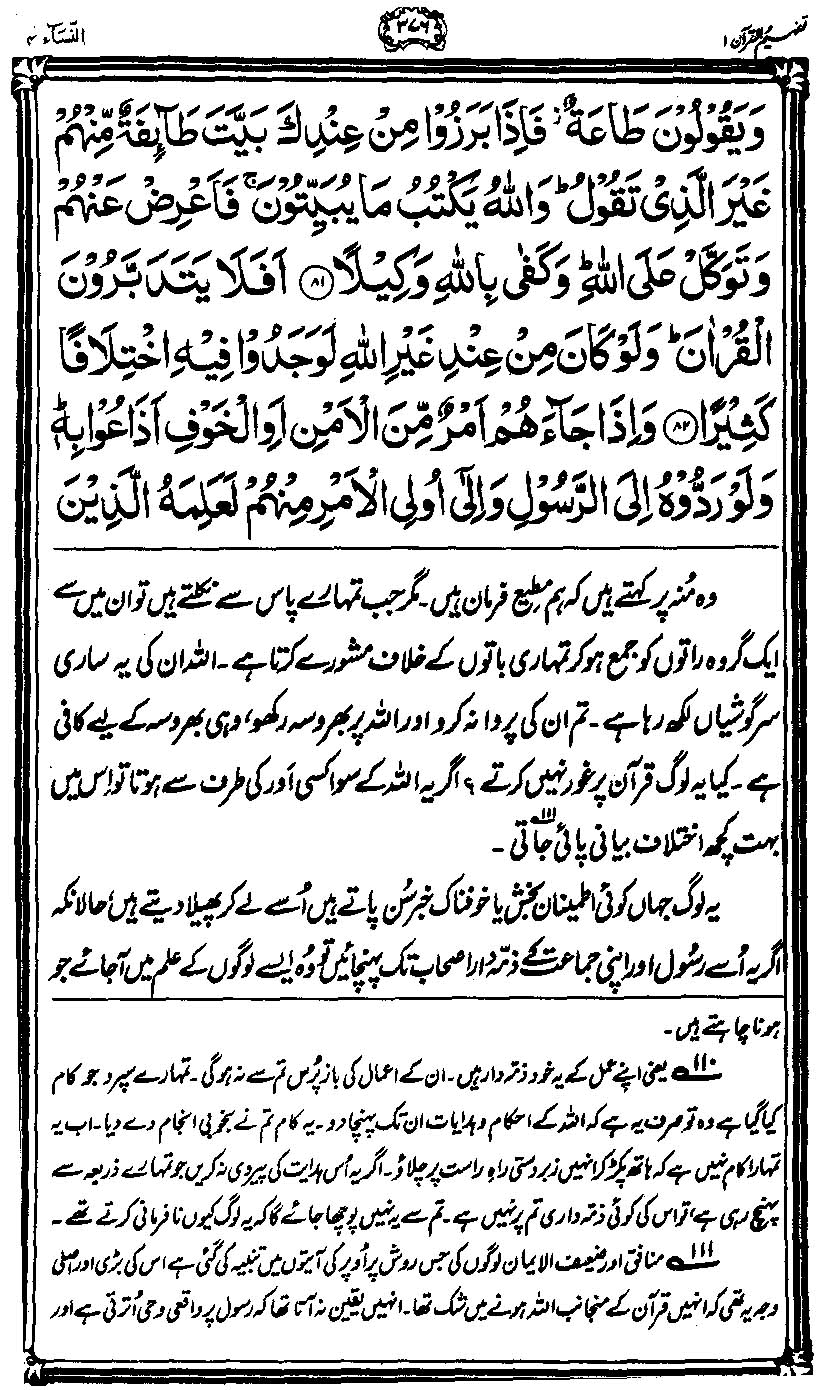 تفہیم القرآن ۱
۳۷۶
النساء ۴
وَيَقُوْلُوْنَ طَاعَةٌ ۡ فَاِذَا بَرَزُوْا مِنْ عِنْدِكَ بَيَّتَ طَآئِفَةٌ مِّنْهُمْ
غَيْرَ الَّذِىْ تَقُوْلُ ؕ وَاللّٰهُ يَكْتُبُ مَا يُبَيِّتُوْنَ ۚ فَاَعْرِضْ عَنْهُمْ
وَتَوَكَّلْ عَلَى اللّٰهِ ؕ وَكَفٰى بِاللّٰهِ وَكِيْلًا ﴿۸۱﴾ اَفَلَا يَتَدَبَّرُوْنَ
الْقُرْاٰنَ ؕ وَلَوْ كَانَ مِنْ عِنْدِ غَيْرِ اللّٰهِ لَوَجَدُوْا فِيْهِ اخْتِلَافًا
كَثِيْرًا ﴿۸۲﴾ وَاِذَا جَآءَهُمْ اَمْرٌ مِّنَ الْاَمْنِ اَوِ الْخَوْفِ اَذَاعُوْا بِهٖ ؕ
وَلَوْ رَدُّوْهُ اِلَى الرَّسُوْلِ وَاِلٰٓى اُولِى الْاَمْرِ مِنْهُمْ لَعَلِمَهُ الَّذِيْنَ
وہ منہ پر کہتے ہیں کہ ہم مطیع فرمان ہیں۔ مگر جب تمہارے پاس سے نکلتے ہیں تو ان میں سے
ایک گروہ راتوں کو جمع ہو کر تمہاری باتوں کے خلاف مشورے کرتا ہے۔ اللہ ان کی یہ ساری
سرگوشیاں لکھ رہا ہے۔ تم ان کی پروا نہ کرو اور اللہ پر بھروسہ رکھو، وہی بھروسہ کے لیے کافی
ہے۔ کیا یہ لوگ قرآن پر غور نہیں کرتے؟ اگر یہ اللہ کے سوا کسی اَور کی طرف سے ہوتا تو اِس میں
بہت کچھ اختلاف بیانی پائی جاتی۱۱۱۔
یہ لوگ جہاں کوئی اطمینان بخش یا خوفناک خبر سُن پاتے ہیں اُسے لے کر پھیلا دیتے ہیں، حالانکہ
اگر یہ اُسے رسُول اور اپنی جماعت کے ذمّہ دار اصحاب تک پہنچائیں تو وُہ ایسے لوگوں کے علم میں آجائے جو
ہونا چاہتے ہیں۔
۱۱۰ یعنی اپنے عمل کے یہ خود ذمّہ دار ہیں۔ ان کے اعمال کی باز پُرس تم سے نہ ہو گی۔ تمہارے سپرد جو کام
کیا گیا ہے وہ تو صرف یہ ہے کہ اللہ کے احکام و ہدایات ان تک پہنچا دو۔ یہ کام تم نے بخوبی انجام دے دیا۔ اب یہ
تمہارا کام نہیں ہے کہ ہاتھ پکڑ کر انہیں زبردستی راہِ راست پر چلاؤ۔ اگر یہ اُس ہدایت کی پیروی نہ کریں جو تمہارے ذریعہ سے
پہنچ رہی ہے، تو اس کی کوئی ذمّہ داری تم پر نہیں ہے۔ تم سے یہ نہیں پوچھا جائے گا کہ یہ لوگ کیوں نافرمانی کرتے تھے۔
۱۱۱ منافق اور ضعیف الایمان لوگوں کی جس روش پر اُوپر کی آیتوں میں تنبیہ کی گئی ہے اس کی بڑی اور اصلی
وجہ یہ تھی کہ انہیں قرآن کے منجانب اللہ ہونے میں شک تھا۔ انہیں یقین نہ آتا تھا کہ رسول پر واقعی وحی اُترتی ہے اور